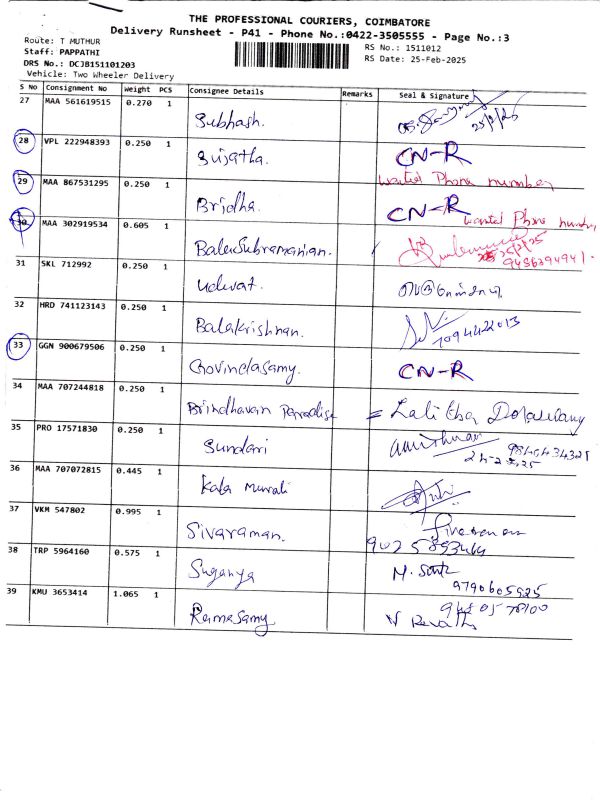 THE PROFESSIONAL COURIERS, COIMBATORE
Delivery Runsheet - P41 - Phone No.:0422-3505555 - Page No.:3
Route: T MUTHUR
RS No.: 1511012
Staff: PAPPATHI
RS Date: 25-Feb-2025
DRS No.: DCJB151101203
Vehicle: Two Wheeler Delivery
S No Consignment No Weight PCS Consignee Details Remarks Seal & Signature
27 MAA 561619515 0.270 1 Subhash. 25/2/25
28 VPL 222948393 0.250 1 Sujatha. CN-R
wanted Phone number
29 MAA 867531295 0.250 1 Bridha. CN-R wanted Phone number
30 MAA 302919534 0.605 1 BaluSubramanian.
31 SKL 712992 0.250 1 Udwat.
32 HRD 741123143 0.250 1 Balakrishnan.
33 GGN 900679506 0.250 1 Govindasamy. CN-R
34 MAA 707244818 0.250 1 Brindhavan Paradise = Lalitha Doraiswamy
35 PRO 17571830 0.250 1 Sundari
36 MAA 707072815 0.445 1 Kala Murali
37 VKM 547802 0.995 1 Sivaraman.
38 TRP 5964160 0.575 1 Suganya 9790605925
39 KMU 3653414 1.065 1 Ramasamy